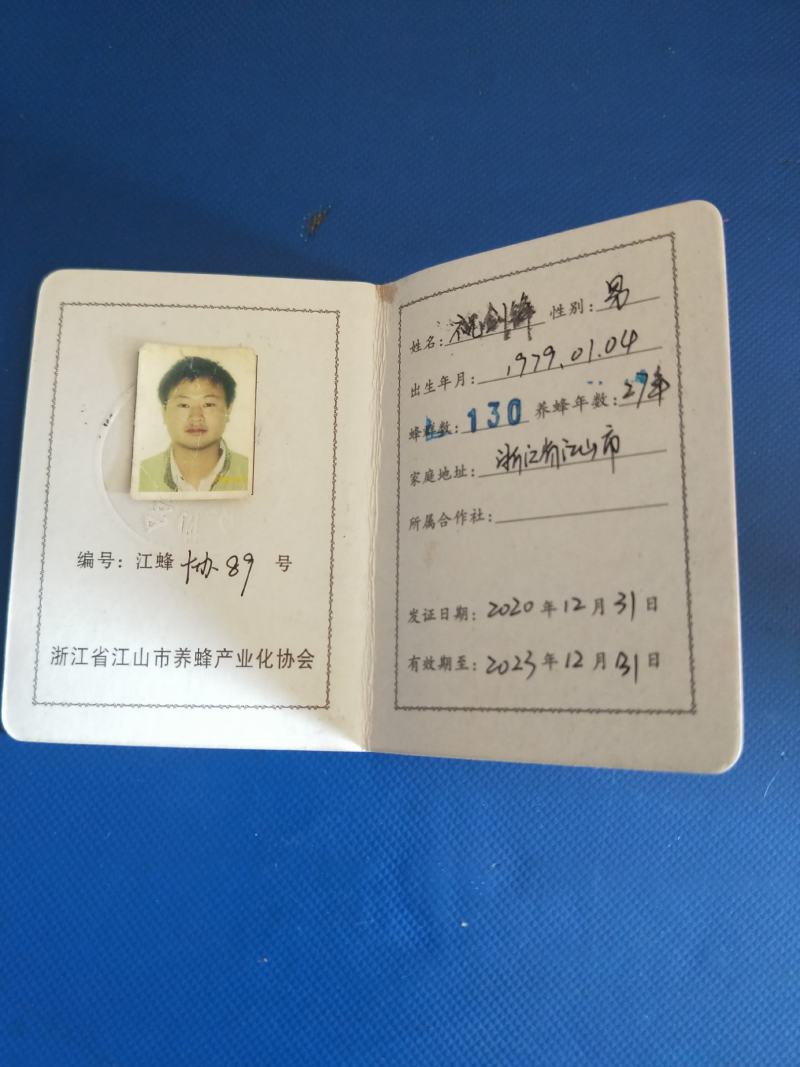 编号：江蜂协89号
浙江省江山市养蜂产业化协会
姓名：祝剑锋 性别：男
出生年月：1979.01.04
蜂群数：130 养蜂年数：27年
家庭地址：浙江省江山市
所属合作社：
发证日期：2020年12月31日
有效期至：2023年12月31日